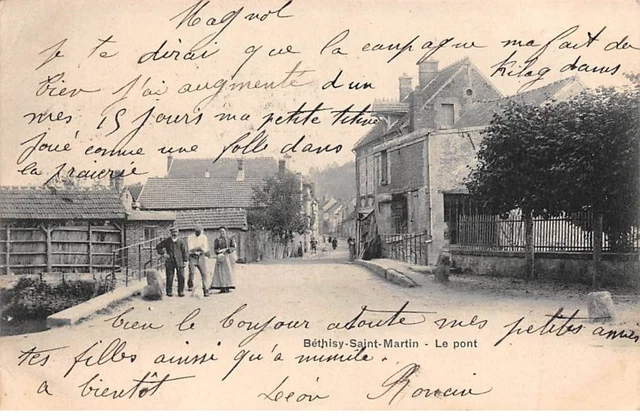 Magnol
Je te dirai que la campagne ma fait de
bien j'ai augmenté d'un kilog dans
mes 15 jours ma petite titine
joué comme une folle dans
la prairie
bien le bonjour a toute mes petites amies
Béthisy-Saint-Martin - Le pont
tes filles ainsi qu'a mimile.
a bientôt Léon Romain